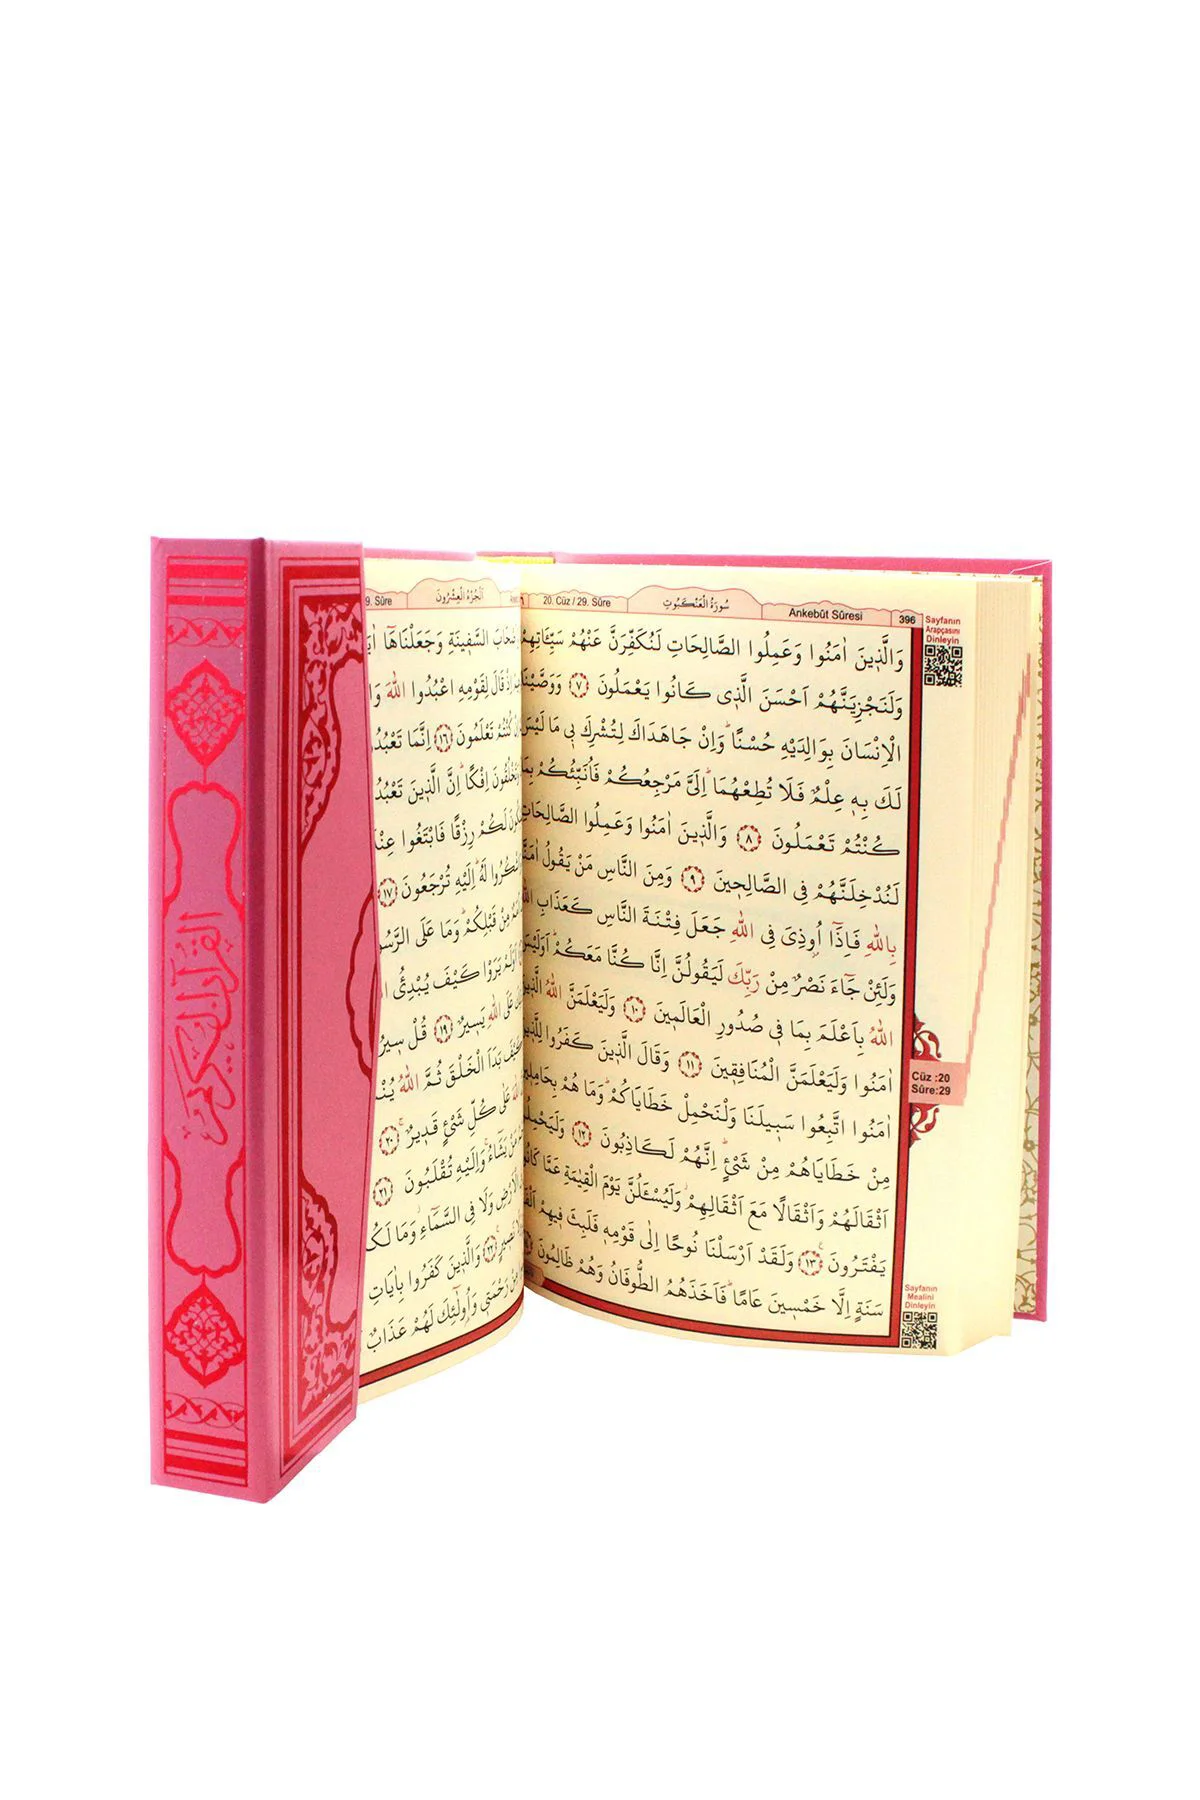 القرآن الكريم
396
Ankebût Sûresi
سُورَةُ الْعَنْكَبُوتِ
20. Cüz / 29. Sûre
Sayfanın
Arapçasını
Dinleyin
وَالَّذ۪ينَ اٰمَنُوا وَعَمِلُوا الصَّالِحَاتِ لَنُكَفِّرَنَّ عَنْهُمْ سَيِّـَٔاتِهِمْ
وَلَنَجْزِيَنَّهُمْ اَحْسَنَ الَّذ۪ي كَانُوا يَعْمَلُونَ ﴿٧﴾ وَوَصَّيْنَا
الْاِنْسَانَ بِوَالِدَيْهِ حُسْنًاۜ وَاِنْ جَاهَدَاكَ لِتُشْرِكَ ب۪ي مَا لَيْسَ
لَكَ بِه۪ عِلْمٌ فَلَا تُطِعْهُمَاۜ اِلَيَّ مَرْجِعُكُمْ فَاُنَبِّئُكُمْ بِمَا
كُنْتُمْ تَعْمَلُونَ ﴿٨﴾ وَالَّذ۪ينَ اٰمَنُوا وَعَمِلُوا الصَّالِحَاتِ
لَنُدْخِلَنَّهُمْ فِي الصَّالِح۪ينَ ﴿٩﴾ وَمِنَ النَّاسِ مَنْ يَقُولُ اٰمَنَّا
بِاللّٰهِ فَاِذَٓا اُو۫ذِيَ فِي اللّٰهِ جَعَلَ فِتْنَةَ النَّاسِ كَعَذَابِ
وَلَئِنْ جَٓاءَ نَصْرٌ مِنْ رَبِّكَ لَيَقُولُنَّ اِنَّا كُنَّا مَعَكُمْۜ اَوَلَيْسَ
اللّٰهُ بِاَعْلَمَ بِمَا ف۪ي صُدُورِ الْعَالَم۪ينَ ﴿١٠﴾ وَلَيَعْلَمَنَّ اللّٰهُ الَّذ۪ينَ
اٰمَنُوا وَلَيَعْلَمَنَّ الْمُنَافِق۪ينَ ﴿١١﴾ وَقَالَ الَّذ۪ينَ كَفَرُوا لِلَّذ۪ينَ
اٰمَنُوا اتَّبِعُوا سَب۪يلَنَا وَلْنَحْمِلْ خَطَايَاكُمْۜ وَمَا هُمْ بِحَامِل۪ينَ
مِنْ خَطَايَاهُمْ مِنْ شَيْءٍۜ اِنَّهُمْ لَكَاذِبُونَ ﴿١٢﴾ وَلَيَحْمِلُنَّ
اَثْقَالَهُمْ وَاَثْقَالًا مَعَ اَثْقَالِهِمْۘ وَلَيُسْـَٔلُنَّ يَوْمَ الْقِيٰمَةِ عَمَّا كَانُوا
يَفْتَرُونَ۟ ﴿١٣﴾ وَلَقَدْ اَرْسَلْنَا نُوحًا اِلٰى قَوْمِه۪ فَلَبِثَ ف۪يهِمْ اَلْفَ
سَنَةٍ اِلَّا خَمْس۪ينَ عَامًاۜ فَاَخَذَهُمُ الطُّوفَانُ وَهُمْ ظَالِمُونَ
Cüz :20
Sûre:29
Sayfanın
Mealini
Dinleyin
اَلْجُزْءُ الْعِشْرُونَ
9. Sûre
السَّف۪ينَةِ وَجَعَلْنَاهَٓا
اِذْ قَالَ لِقَوْمِهِ اعْبُدُوا اللّٰهَ
كُنْتُمْ تَعْلَمُونَ ﴿١٦﴾ اِنَّمَا
اِفْكًاۜ اِنَّ الَّذ۪ينَ
لَكُمْ رِزْقًا فَابْتَغُوا
لَهُۜ اِلَيْهِ تُرْجَعُونَ ﴿١٧﴾
مِنْ قَبْلِكُمْۜ وَمَا عَلَى
اَوَلَمْ يَرَوْا كَيْفَ يُبْدِئُ
عَلَى اللّٰهِ يَس۪يرٌ ﴿١٩﴾ قُلْ
بَدَاَ الْخَلْقَ ثُمَّ اللّٰهُ
عَلٰى كُلِّ شَيْءٍ قَد۪يرٌۚ ﴿٢٠﴾
مَنْ يَشَٓاءُۚ وَاِلَيْهِ تُقْلَبُونَ ﴿٢١﴾
وَلَا فِي السَّمَٓاءِۘ وَمَا
﴿٢٢﴾ وَالَّذ۪ينَ كَفَرُوا بِاٰيَاتِ
مِنْ رَحْمَت۪ي وَاُو۬لٰٓئِكَ لَهُمْ عَذَابٌ